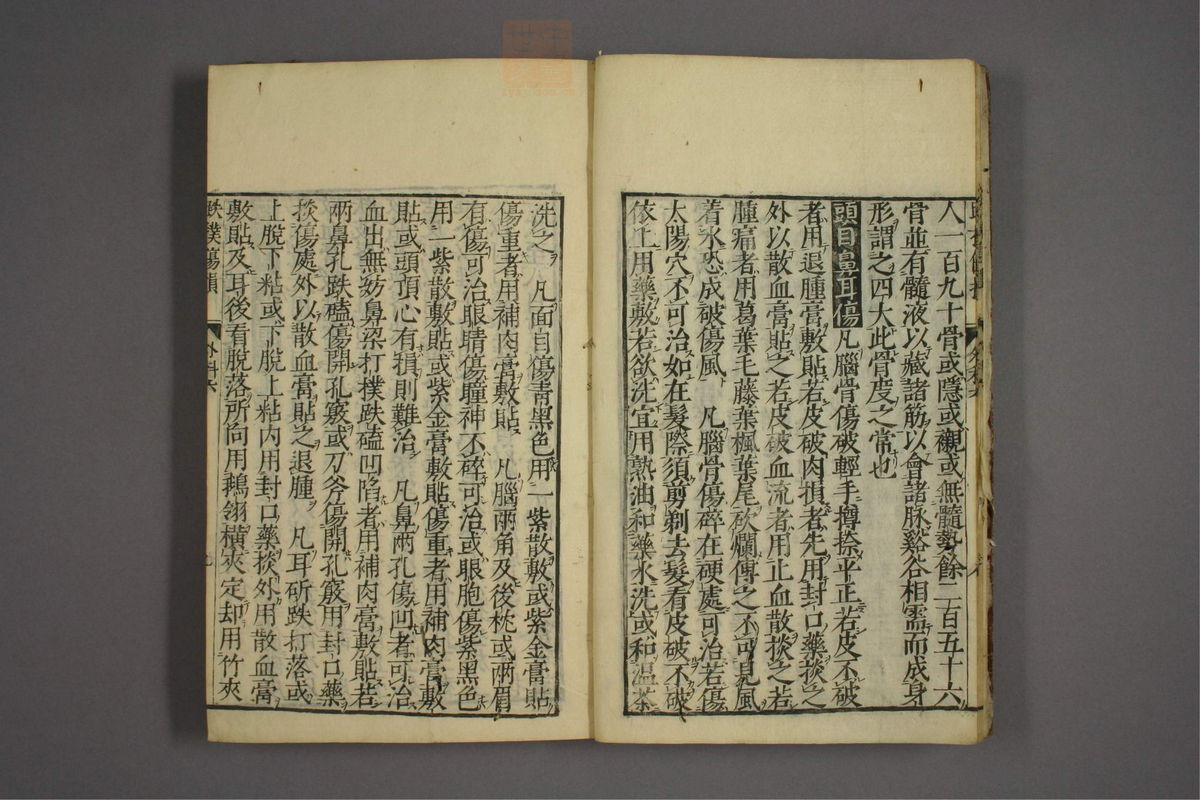 人一百九十骨或隱或襯或無髓勢餘二百五十六
骨並有髓液以藏諸筋以會諸脉谿谷相需而成身
形謂之四大此骨度之常也
頭目鼻耳傷 凡腦骨傷破輕手撙捺平正若皮不破
者用退腫膏敷貼若皮破肉損者先用封口藥掞之
外以散血膏貼之若皮破血流者用止血散掞之若
腫痛者用葛葉毛藤葉楓葉尾砍爛傅之不可見風
着水恐成破傷風 凡腦骨傷碎在硬處可治若傷
太陽穴不可治如在髮際須剪剃去髮看皮破不破
依上用藥敷若欲洗宜用熟油和藥水洗或和溫茶
洗之 凡面目傷青黑色用一紫散敷或紫金膏貼
傷重者用補肉膏敷貼 凡腦兩角及後枕或兩眉
有傷可治眼睛傷瞳神不碎可治或眼胞傷紫黑色
用一紫散敷貼或紫金膏敷貼傷重者用補肉膏敷
貼或頭頂心有損則難治 凡鼻兩孔傷凹者可治
血出無妨鼻梁打撲跌磕凹陷者用補肉膏敷貼若
兩鼻孔跌磕傷開孔竅或刀斧傷開孔竅用封口藥
掞傷處外以散血膏貼之退腫 凡耳斫跌打落或
上脫下粘或下脫上粘內用封口藥掞外用散血膏
敷貼及耳後看脫落所向用鵝翎橫夾定却用竹夾
跌撲傷損 外科六